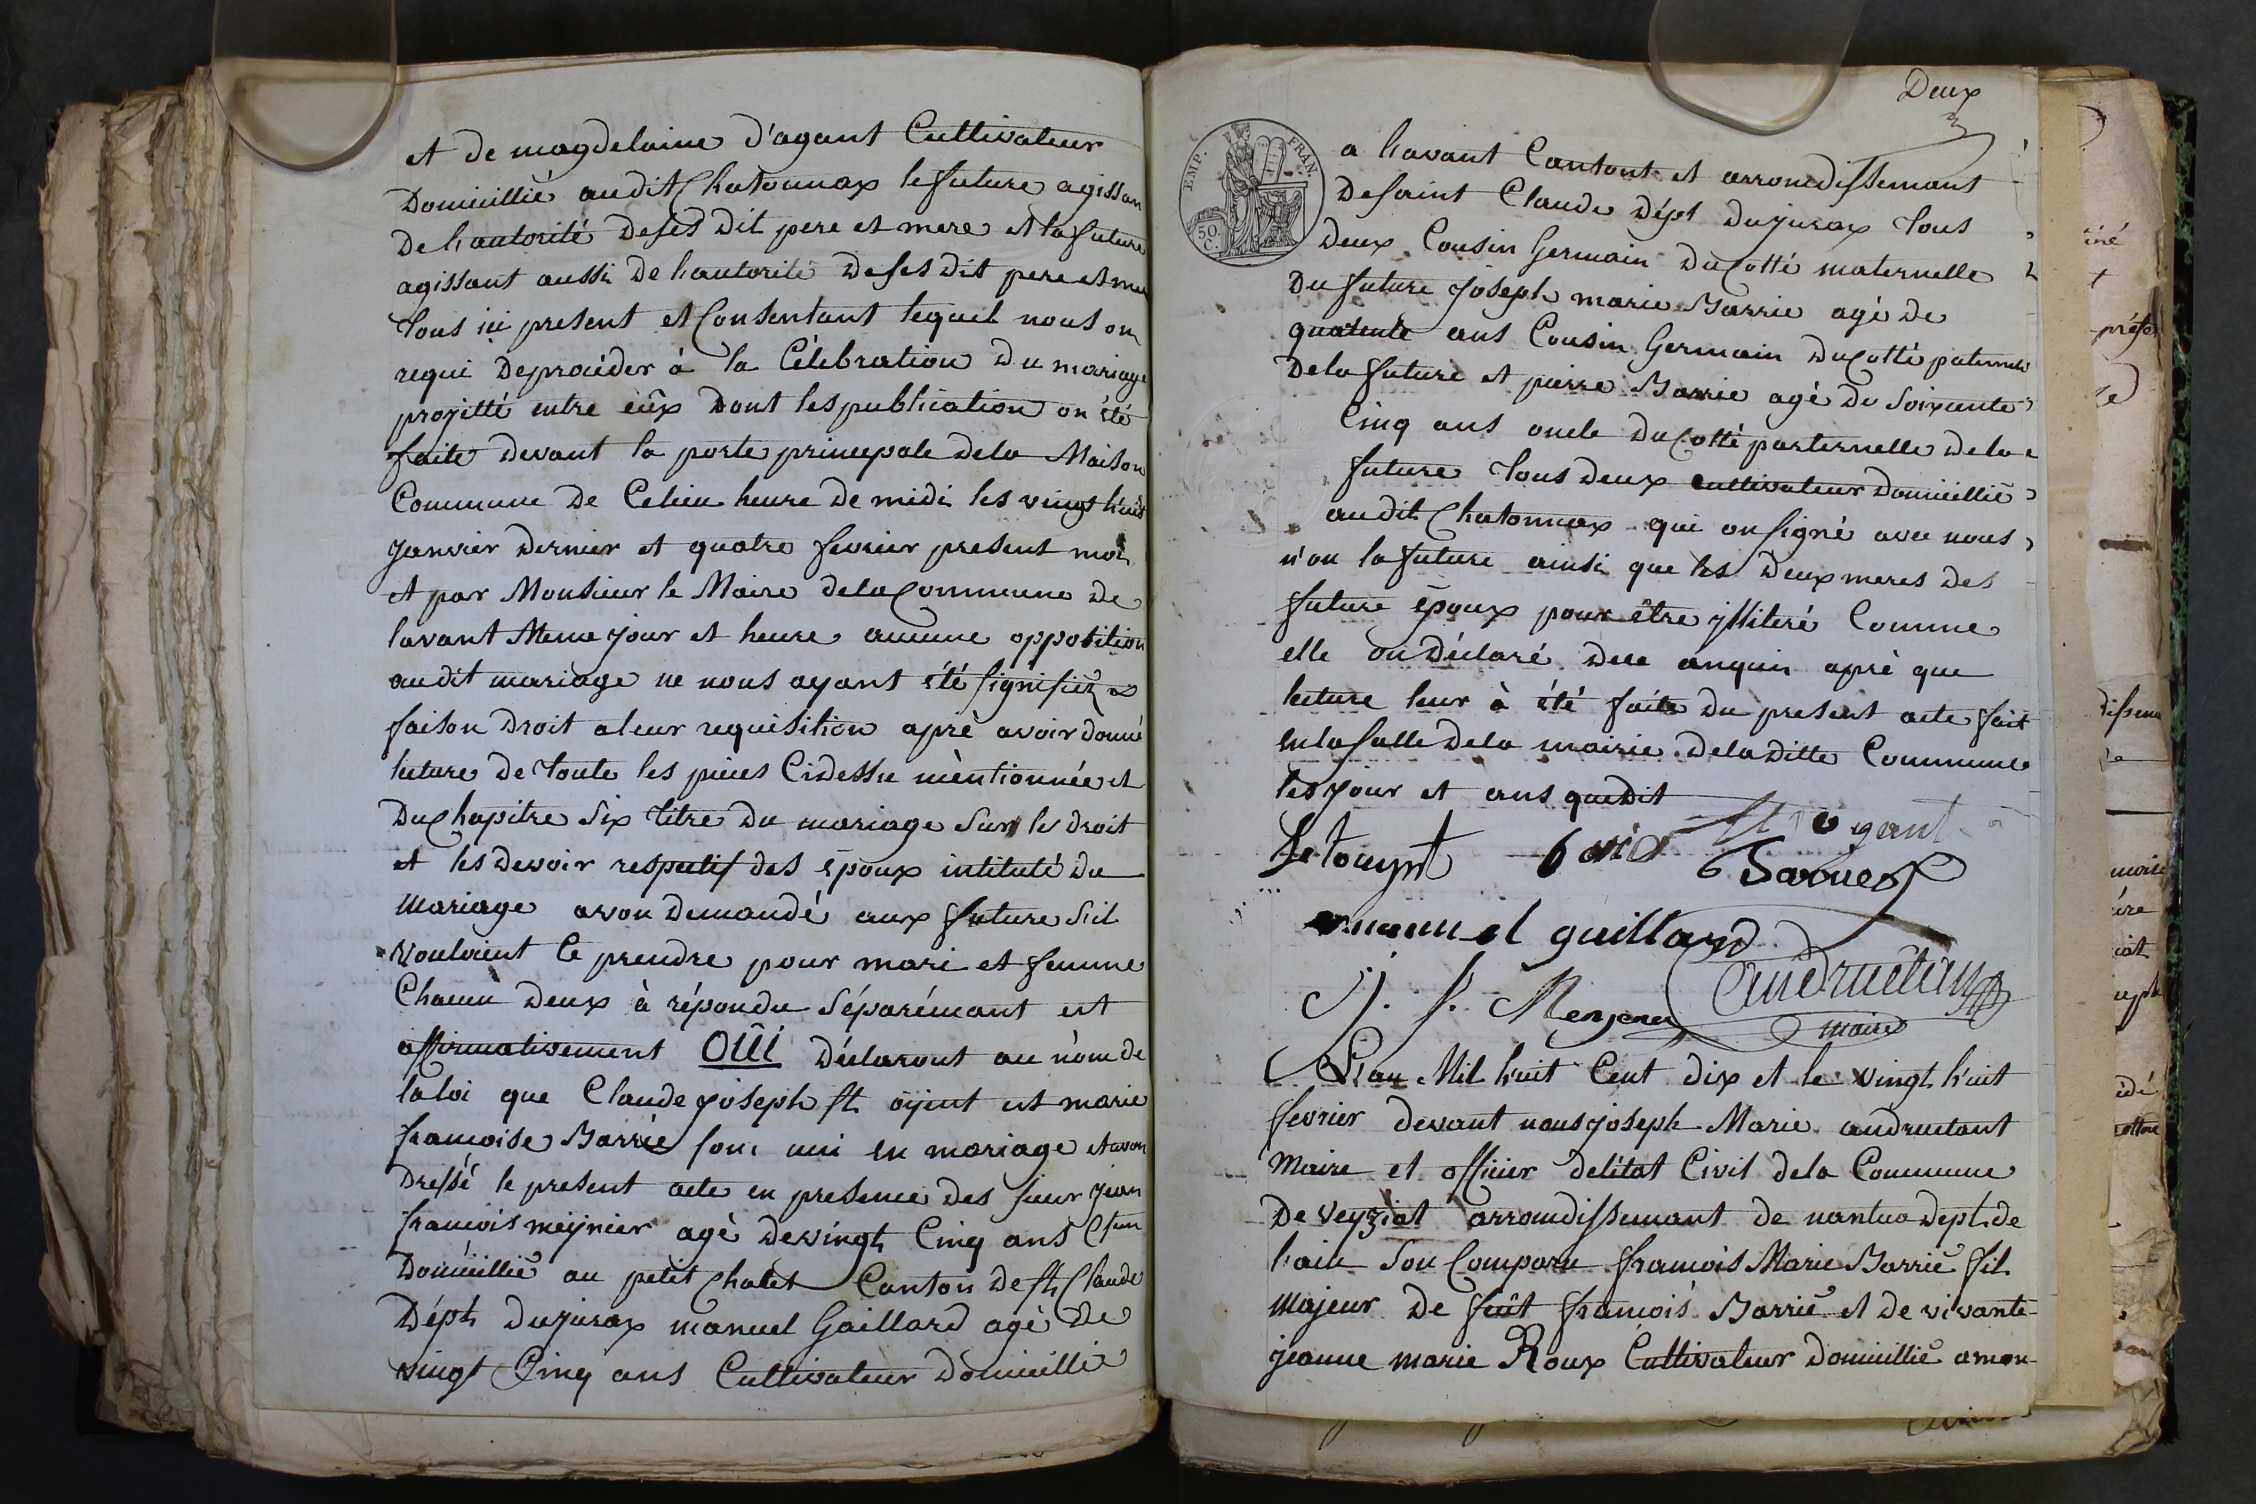 et de magdelaine d'agant Cultivateur
Domicillié audit Chatonnax le future agissan
De l'autorité deses dit pere et mere et la future
agissant aussi De l'autorité deses dit pere et me
tous ici present et Consentant lequel nous on
requi de procéder à la Célébration du mariage
projetté entre eûx Dont les publication on été
faite devant la porte principale dela Maison
Commune de Celieu heure de midi les vingt huit
janvier dernier et quatre fevrier present moi
et par Monsieur le Maire dela Commune de
lavant Meme jour et heure aucune opposition
audit mariage ne nous ayant été signifiéz
faison Droit a leur requisition aprè avoir donné
lecture de toute les pieces Cidessu mèntionnée et
Du Chapitre Six titre Du mariage Sur les droit
et les devoir respectif des époux intitulé du
mariage avon demandé aux future s'il
vouloient ce prendre pour mari et femme
Chacun deux à répondu Séparémant est
affirmativement OUI déclaront au nom de
la loi que Claude joseph St oyent est marie
francoise Barrié sont uni en mariage et avon
Dressé le present acte en presence des sieur jean
francois meynier agé de vingt Cinq ans
Domicillié au petit Chatel Canton de St Claude
Dépt dujurax manuel Gaillard agé De
vingt Cinq ans Cultivateur Domicillié
Deux
EMP. FRAN.
50. C.
a lavant Cantont et arrondissemant
De saint Claude Dépt dujurax tous
deux Cousin Germain du Cotté maternelle
Du future joseph marie Barrie agé de
quarente ans Cousin Germain du Cotté paternel
De la future et pierre Barrie agé de Soixante
Cinq ans oncle du Cotté parternelle de la
future tous deux cultivateur Domicillié
audit Chatonnax qui on signé avec nous
n'on la future ainsi que les deux meres des
future époux pour être illiteré Comme
elle on Déclaré de ce anquis aprè que
lecture leur à été faite du present acte fait
en la salle dela mairie de la ditte Commune
les jour et ans que dit
emanuel guillard
andruétan
maire
L'an Mil huit Cent dix et le vingt huit
fevrier devant nous joseph Marie andruetant
Maire et officier de l'état Civil dela Commune
De Veyziat arrondissemant de nantua dept. de
l'ain Son Comparu francois Marie Barrié fil
Majeur De fuût francois Barrié et de vivante
jeanne marie Roux Cultivateur Domicillié amon-